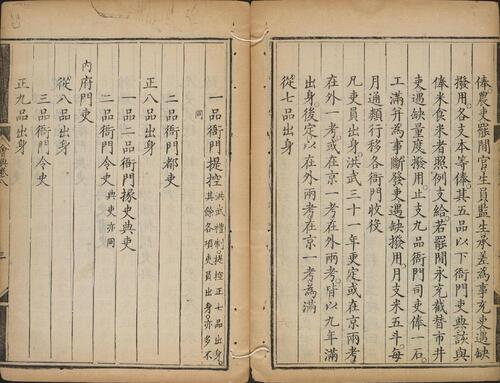 俸農吏罷閒官生員監生承差為事充吏遇缺
撥用各支本等俸其五品以下衙門吏典該與
俸米食米者照例支給若罷閒永充截替市井
吏遇缺量度撥用止支九品衙門司吏俸一石
工滿并為事斷發吏遇缺撥用月支米五斗每
月通類行移各衙門收後
凡吏員出身洪武三十一年更定或在京兩考
在外一考或在京一考在外兩考皆以九年滿
出身後定以在外兩考在京一考為滿
從七品出身
一品衙門提控洪武禮制提控正七品出身
其餘各項吏員出身亦多不
同
二品衙門都吏
正八品出身
一品二品衙門掾史典吏
二品衙門令史典吏亦同
內府門吏
從八品出身
三品衙門令史
正九品出身
會典卷八